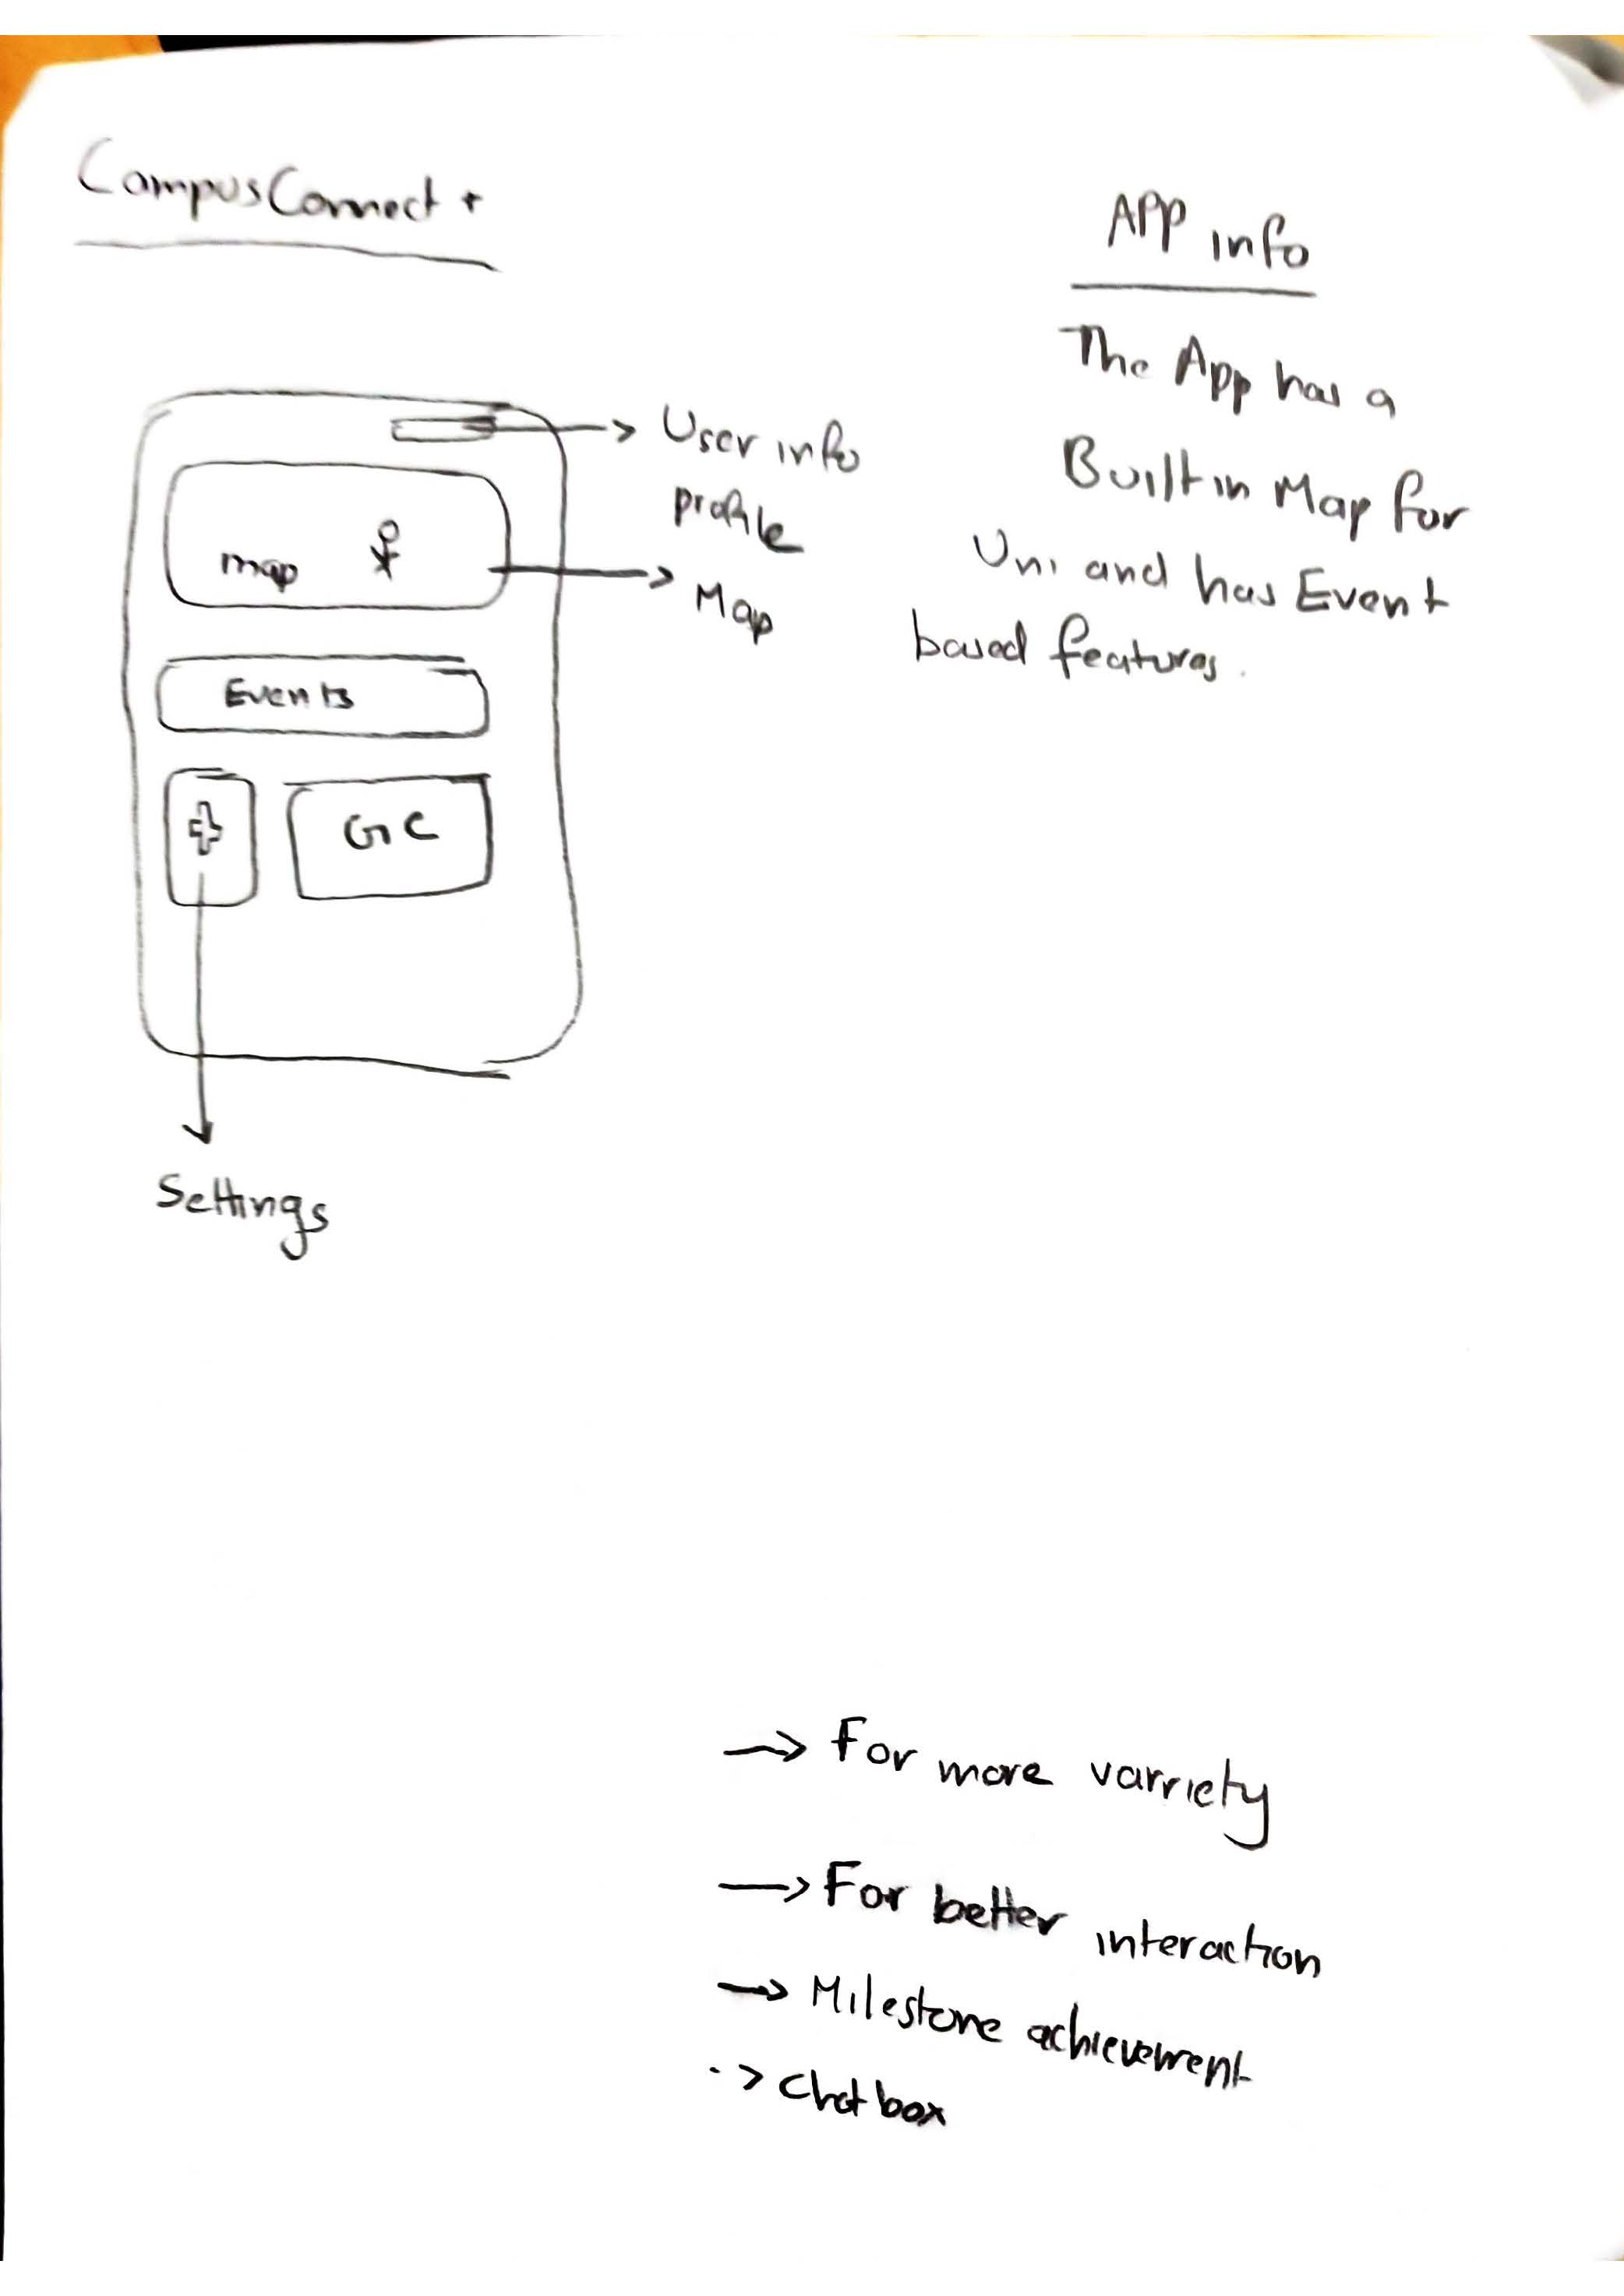 CampusConnect +
APP info
The App has a
Built in Map for
Uni and has Event
based features.
User info
profile
map
Map
Events
GC
Settings
→ For more varriety
→ For better interaction
→ Milestone achievement
-> Chatbox